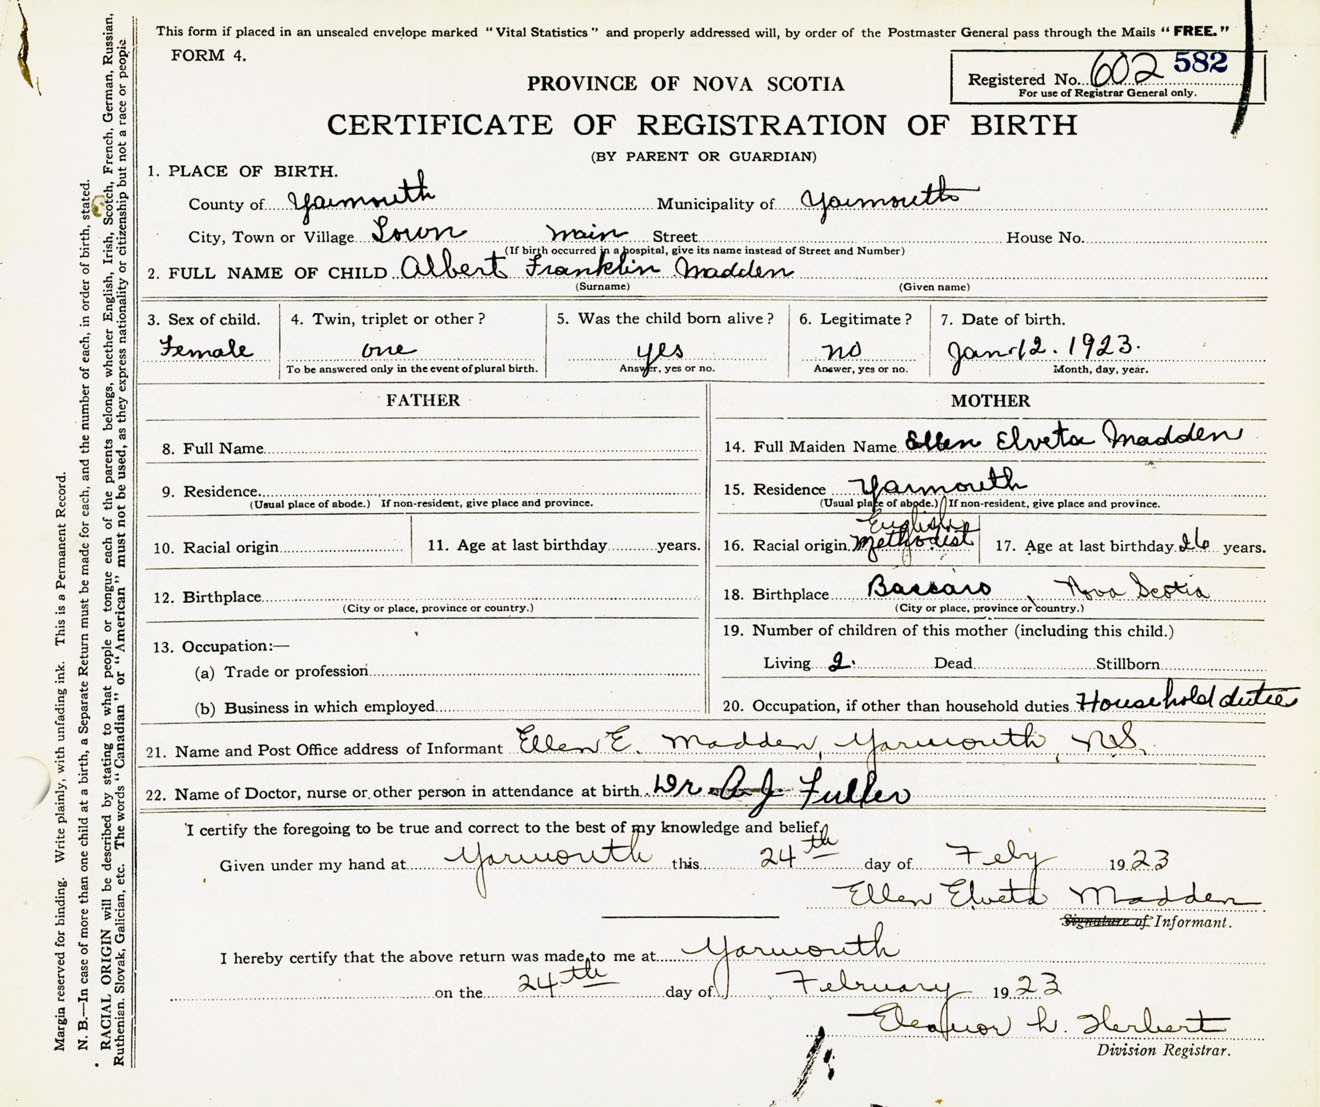 This form if placed in an unsealed envelope marked "Vital Statistics" and properly addressed will, by order of the Postmaster General pass through the Mails "FREE."
FORM 4.
Registered No. 602 582
For use of Registrar General only.
PROVINCE OF NOVA SCOTIA
CERTIFICATE OF REGISTRATION OF BIRTH
(BY PARENT OR GUARDIAN)
1. PLACE OF BIRTH.
County of Yarmouth Municipality of Yarmouth
City, Town or Village Town Main Street House No.
(If birth occurred in a hospital, give its name instead of Street and Number)
2. FULL NAME OF CHILD Albert Franklin Madden
(Surname) (Given name)
3. Sex of child. 4. Twin, triplet or other? 5. Was the child born alive? 6. Legitimate? 7. Date of birth.
Female one yes no Jan 12. 1923.
To be answered only in the event of plural birth. Answer, yes or no. Answer, yes or no. Month, day, year.
FATHER
8. Full Name
9. Residence.
(Usual place of abode.) If non-resident, give place and province.
10. Racial origin 11. Age at last birthday years.
12. Birthplace
(City or place, province or country.)
13. Occupation:—
(a) Trade or profession
(b) Business in which employed
MOTHER
14. Full Maiden Name Ellen Elveta Madden
15. Residence Yarmouth
(Usual place of abode.) If non-resident, give place and province.
English
16. Racial origin Methodist 17. Age at last birthday 26 years.
18. Birthplace Baccaro Nova Scotia
(City or place, province or country.)
19. Number of children of this mother (including this child.)
Living 2. Dead Stillborn
20. Occupation, if other than household duties Household duties
21. Name and Post Office address of Informant Ellen E. Madden, Yarmouth, N.S.
22. Name of Doctor, nurse or other person in attendance at birth. Dr. A. J. Fuller
I certify the foregoing to be true and correct to the best of my knowledge and belief,
Given under my hand at Yarmouth this 24th day of Feby 1923
Ellen Elveta Madden
Signature of Informant.
I hereby certify that the above return was made to me at Yarmouth
on the 24th day of February 1923
Eleanor L. Herbert
Division Registrar.
Margin reserved for binding. Write plainly, with unfading ink. This is a Permanent Record.
N. B.—In case of more than one child at a birth, a Separate Return must be made for each, and the number of each, in order of birth, stated.
RACIAL ORIGIN will be described by stating to what people or tongue each of the parents belongs, whether English, Irish, Scotch, French, German, Russian,
Ruthenian, Slovak, Galician, etc. The words "Canadian" or "American" must not be used, as they express nationality or citizenship but not a race or people